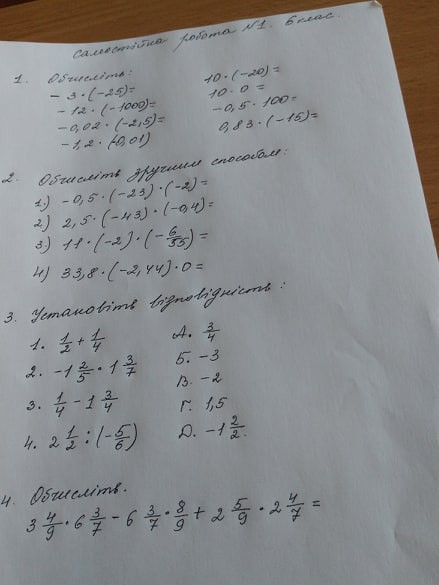 Самостійна робота №1. 6 клас.
1. Обчисліть:
- 3 · (-25) =
- 12 · (-1000) =
- 0,02 · (-2,5) =
- 1,2 · (-0,01)
10 · (-20) =
10 · 0 =
- 0,5 · 100 =
0,83 · (-15) =
2. Обчисліть зручним способом:
1) -0,5 · (-23) · (-2) =
2) 2,5 · (-43) · (-0,4) =
3) 11 · (-2) · (- 6/55) =
4) 33,8 · (-2,44) · 0 =
3. Установіть відповідність:
1. 1/2 + 1/4
2. -1 2/5 · 1 3/7
3. 1/4 - 1 3/4
4. 2 1/2 : (- 5/6)
А. 3/4
Б. -3
В. -2
Г. 1,5
Д. -1 2/2.
4. Обчисліть.
3 4/9 · 6 3/7 - 6 3/7 · 8/9 + 2 5/9 · 2 4/7 =